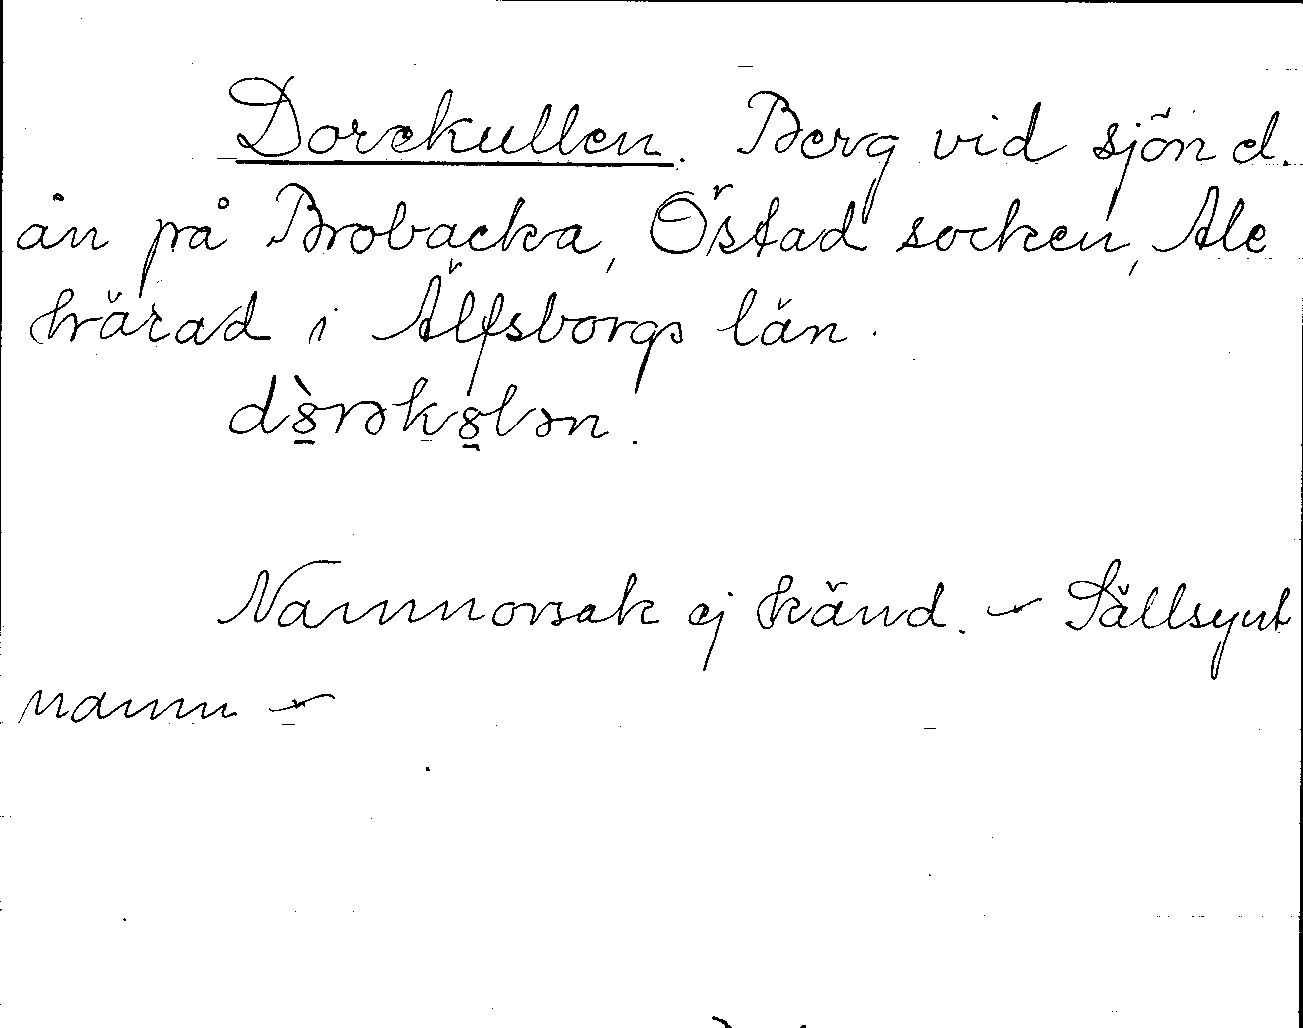 Dorekullen. Berg vid sjön d.
ån på Brobacka, Östad socken, Ale
härad i Älfsborgs län.
dȣ̀rəkȣlən.
Namnorsak ej känd. – Sällsynt
namn –